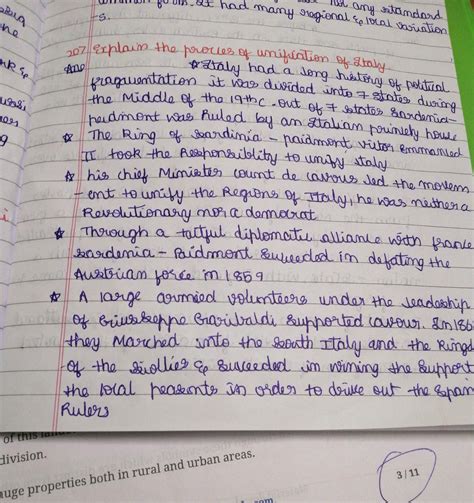 not any standard
common form. It had many regional & local variation
-s.
20? Explain the procies of unification of Italy
Ans ☆ Italy had a long history of political
fragmentation it was divided into 7 states during
the Middle of the 19th c. out of 7 states Sardenia-
peidmont was Ruled by an Italian prinicly house
☆ The King of Sardinia - paidmont, victor Emmanuled
II took the Responsiblity to unify Italy
☆ his chief Minister count de cavour led the movem
-ent to unify the Regions of Italy, he was neither a
Revolutionary nor a democrat
☆ Through a tactful diplomatic alliance with france
Sardenia - Piedmont suceeded in defating the
Austrian force in 1859
☆ A large armied volunteers under the leadership
of Giuskeppe Garibaldi supported Cavour. In 18
they Marched into the South Italy and the Kingd
of the Siollies & suceeded in wining the support
the local peasents in order to drive out the Span
Rulers
of this
division.
huge properties both in rural and urban areas.
3/11